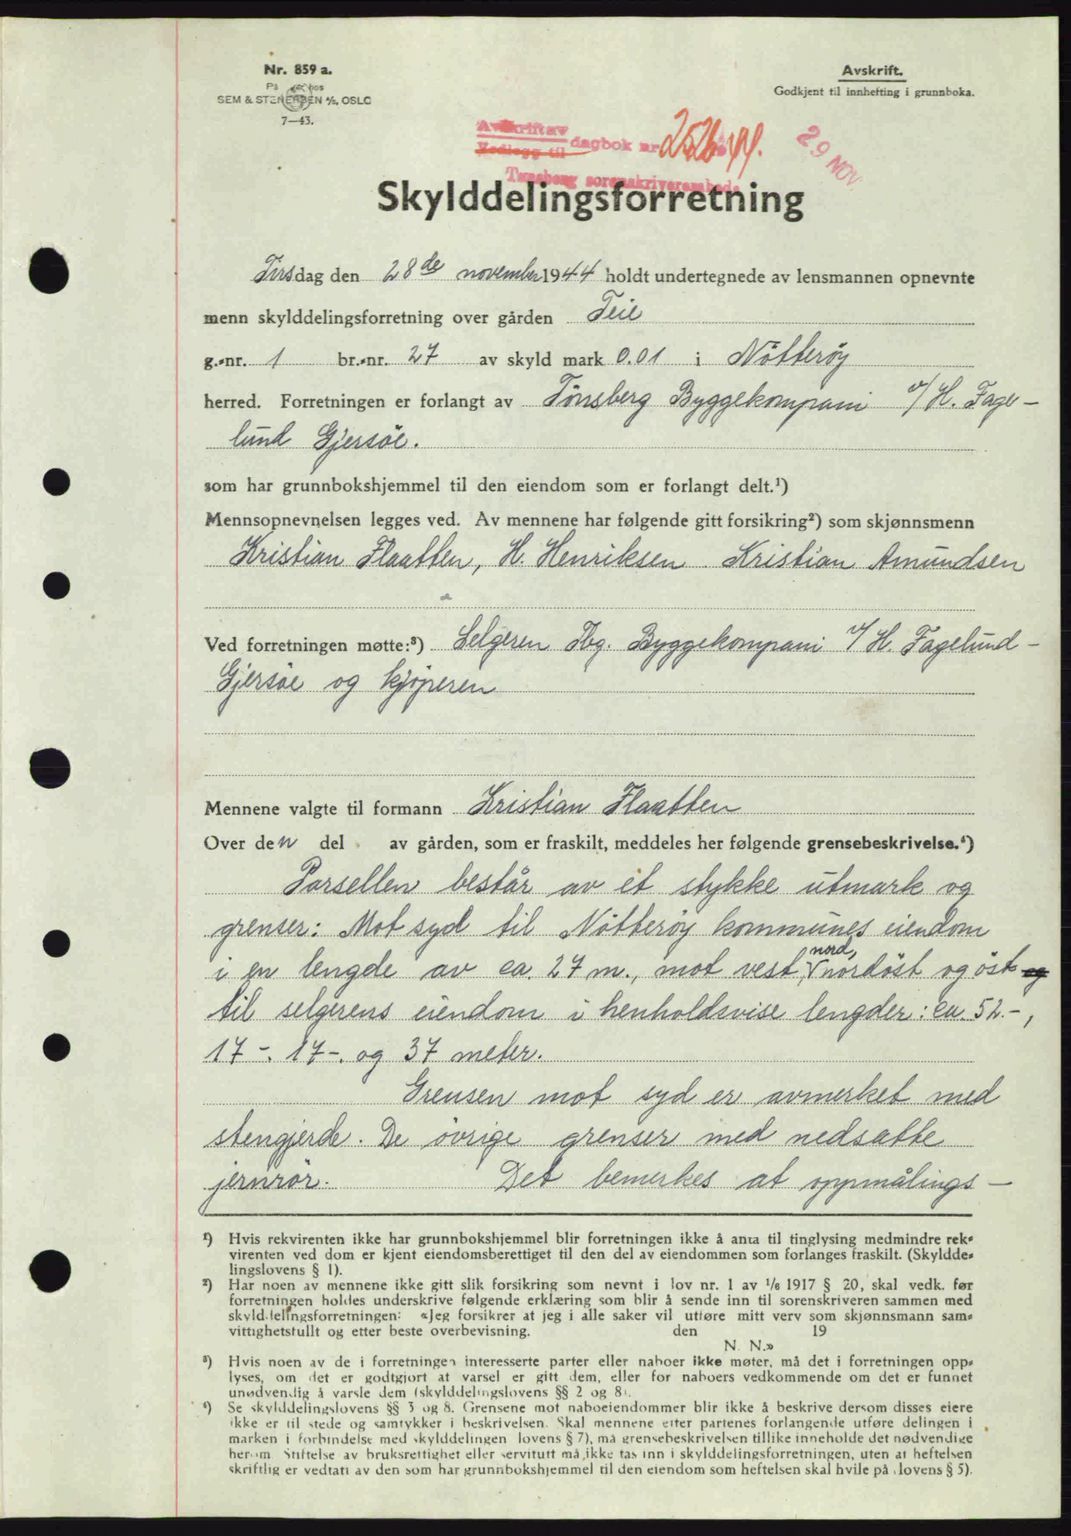 Nr. 859 a.
På hos
SEM & STENERSEN A/S, OSLO
7—43.
Avskrift.
Godkjent til innhefting i grunnboka.
Avskrift av
Vedlegg til dagbok nr 2526 44.
29 NOV.
Tønsberg sorenskriverembede
Skylddelingsforretning
Tirsdag den 28de november 1944 holdt undertegnede av lensmannen opnevnte
menn skylddelingsforretning over gården Teie
g.-nr. 1 br.-nr. 27 av skyld mark 0.01 i Nötteröy
herred. Forretningen er forlangt av Tönsberg Byggekompani v/ H. Fage-
lund Gjersöe.
som har grunnbokshjemmel til den eiendom som er forlangt delt.¹)
Mennsopnevnelsen legges ved. Av mennene har følgende gitt forsikring²) som skjønnsmenn
Kristian Flaatten, H. Henriksen Kristian Amundsen
Ved forretningen møtte:³) Selgeren Tbg. Byggekompani v/ H. Fagelund-
Gjersöe og kjöperen
Mennene valgte til formann Kristian Flaatten
Over den del av gården, som er fraskilt, meddeles her følgende grensebeskrivelse.⁴)
Parsellen består av et stykke utmark og
grenser: Mot syd til Nötteröy kommunes eiendom
i en lengde av ca. 27 m., mot vest, nord, nordöst og öst og
til selgerens eiendom i henholdsvise lengder: ca. 52.-,
17-. 17-. og 37 meter.
Grensen mot syd er avmerket med
stengjerde. De övrige grenser med nedsatte
jernrör. Det bemerkes at oppmålings-
¹) Hvis rekvirenten ikke har grunnbokshjemmel blir forretningen ikke å anta til tinglysing medmindre rek-
virenten ved dom er kjent eiendomsberettiget til den del av eiendommen som forlanges fraskilt. (Skyldde-
lingslovens § 1).
²) Har noen av mennene ikke gitt slik forsikring som nevnt i lov nr. 1 av 1/6 1917 § 20, skal vedk. før
forretningen holdes underskrive følgende erklæring som blir å sende inn til sorenskriveren sammen med
skylddelingsforretningen: «Jeg forsikrer at jeg i alle saker vil utføre mitt verv som skjønnsmann sam-
vittighetsfullt og etter beste overbevisning. den 19
N. N.»
³) Hvis noen av de i forretningen interesserte parter eller naboer ikke møter, må det i forretningen opp-
lyses, om det er godtgjort at varsel er gitt dem, eller for naboers vedkommende om det er funnet
unødvendig å varsle dem (skylddelingslovens §§ 2 og 8).
⁴) Se skylddelingslovens §§ 3 og 8. Grensene mot naboeiendommer blir ikke å beskrive dersom disses eiere
ikke er til stede og samtykker i beskrivelsen. Skal mennene etter partenes forlangende utføre delingen i
marken i forbindelse med skylddelingen (lovens § 7), må grensebeskrivelsen tillike inneholde det nødvendige
herom. Stiftelse av bruksrettighet eller servitutt må ikke tas inn i skylddelingsforretningen, uten at heftelsen
skriftlig er vedtatt av den som har grunnbokshjemmel til den eiendom som heftelsen skal hvile på (lovens § 5).